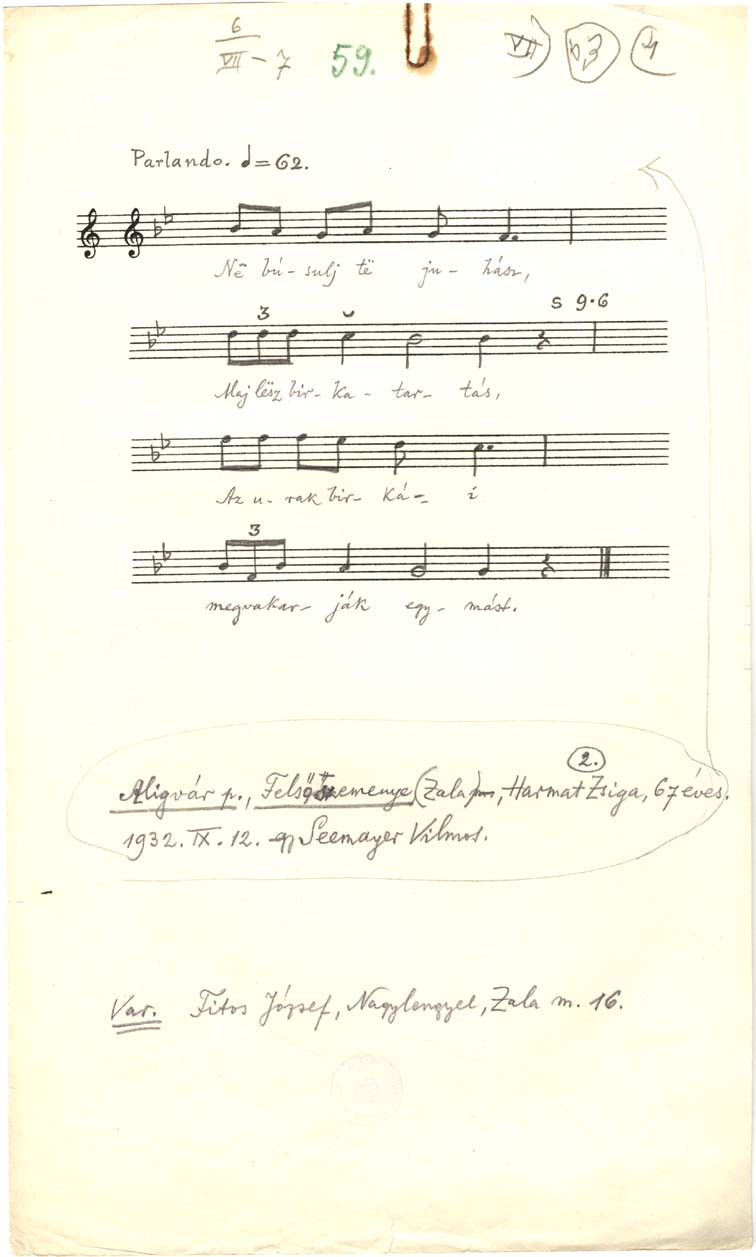 6
VII – 7 59. VII) b3 4
Parlando. ♩=62.
Në bú-sulj të ju-hász,
3 s 9.6
Maj lësz bir-ka-tar-tás,
Az u-rak bir-ká-i
3
megvakar-ják egy-mást.
2.
Aligvár p., Felsőszemenye (Zala), Harmat Zsiga, 67 éves.
1932. IX. 12. Seemayer Vilmos.
Var. Fitos József, Nagylengyel, Zala m. 16.